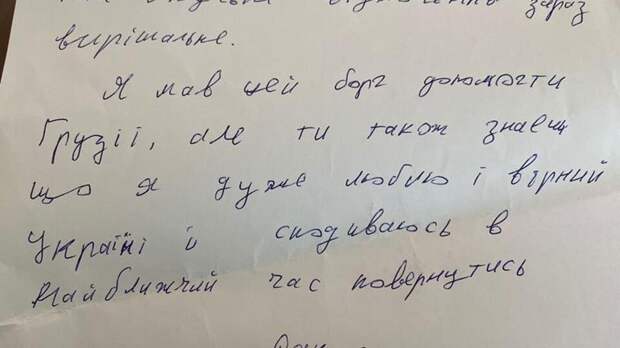 зараз
вирішальне.
Я мав цей борг допомогти
Грузії, але ти також знаєш
що я дуже люблю і вірний
Україні й сподіваюсь в
найближчий час повернутись